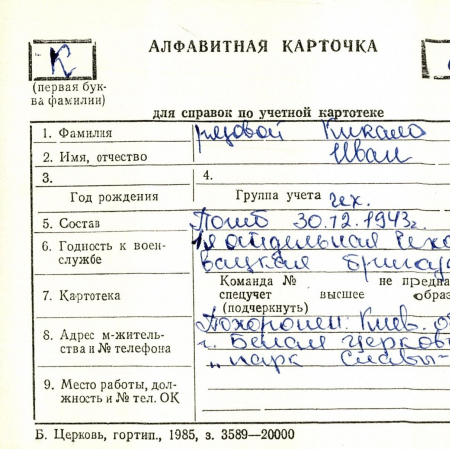 АЛФАВИТНАЯ КАРТОЧКА
К
(первая бук-
ва фамилии)
для справок по учетной картотеке
1. Фамилия рядовой Кикало
2. Имя, отчество Иван
3. 4.
Год рождения Группа учета чех.
5. Состав Погиб 30.12.1943г.
6. Годность к воен- 1я отдельная Чехо
службе вацкая бригад
Команда № не предна
7. Картотека спецучет высшее образ
(подчеркнуть)
8. Адрес м-житель- Похоронен: Киев. о
ства и № телефона г. Белая Церковь
„парк Славы-
9. Место работы, дол-
жность и № тел. ОК
Б. Церковь, гортип., 1985, з. 3589—20000